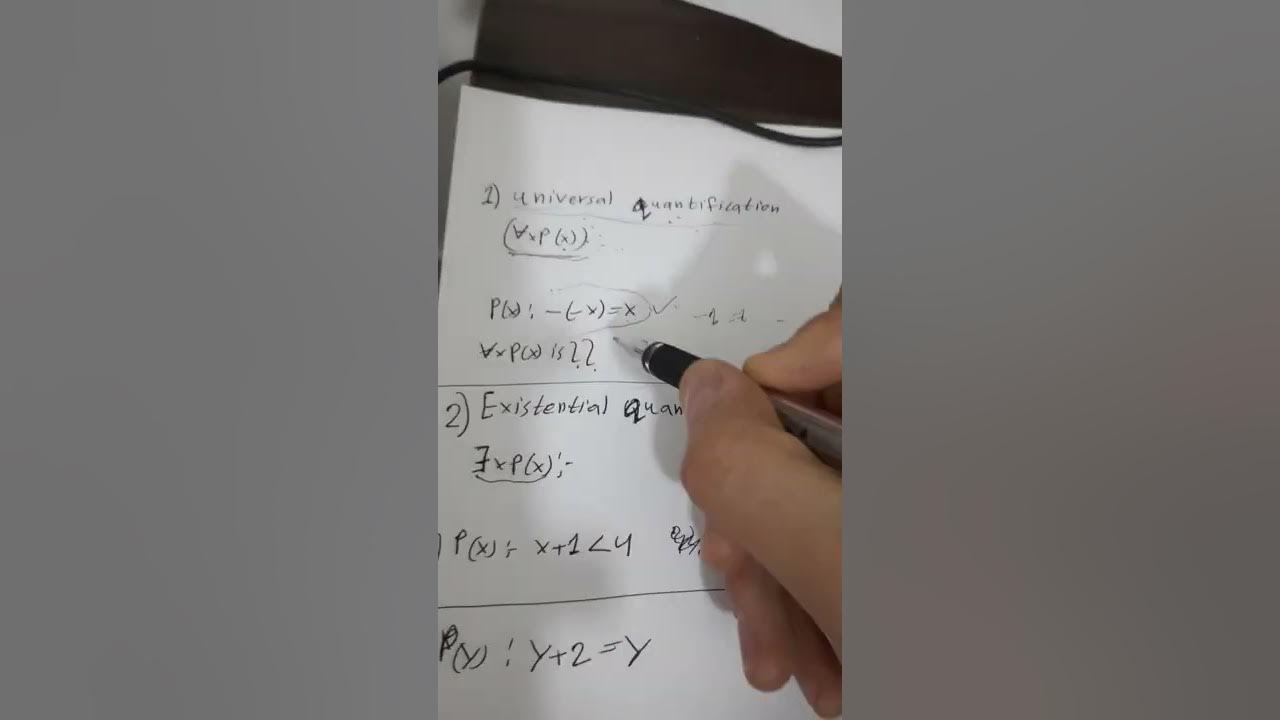 1) universal quantification
(∀xP(x))
P(x): -(-x)=x ✓
∀xP(x) is ??
2) Existential quan
∃xP(x):-
P(x):- x+1<4
P(y): y+2=y